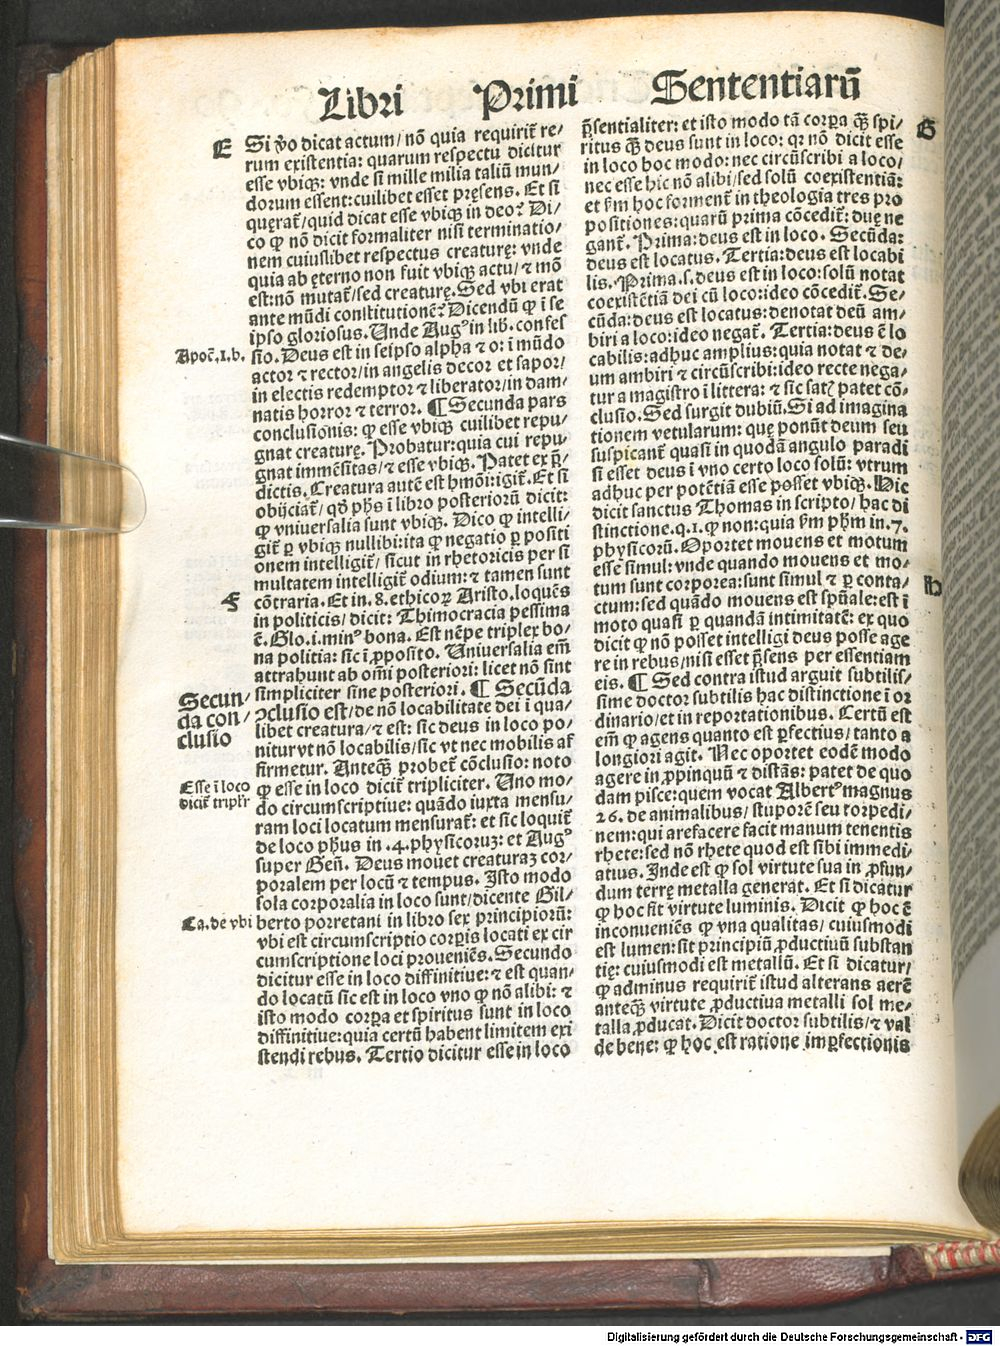 Libri Primi Sententiarũ
E
Si ṽo dicat actum/ nõ quia requirit̃ re/
rum existentia: quarum respectu dicitur
esse vbiqꝫ: vnde si mille milia taliũ mun/
dorum essent: cuilibet esset pręsens. Et si
quęrat̃/ quid dicat esse vbiqꝫ in deo? Di/
co ꝙ nõ dicit formaliter nisi terminatio/
nem cuiuslibet respectus creaturę: vnde
quia ab ęterno non fuit vbiqꝫ actu/ ⁊ mõ
est: nõ mutat̃/ sed creaturę. Sed vbi erat
ante mũdi constitutionẽ? Dicendũ ꝙ ĩ se
ipso gloriosus. Unde Augꝰ in lib. confes
Apoc̃.1.b.
sio. Deus est in seipso alpha ⁊ o: ĩ mũdo
actor ⁊ rector/ in angelis decor et sapor/
in electis redemptor ⁊ liberator/ in dam/
natis horror ⁊ terror. ¶ Secunda pars
conclusionis: ꝙ esse vbiqꝫ cuilibet repu/
gnat creaturę. Probatur: quia cui repu/
gnat immẽsitas/ ⁊ esse vbiqꝫ. Patet ex p̃/
dictis. Creatura autẽ est hmõi: igit̃. Et si
obijciat̃/ qđ phs ĩ libro posteriorũ dicit:
ꝙ vniuersalia sunt vbiqꝫ. Dico ꝙ intelli/
git̃ ꝑ vbiqꝫ nullibi: ita ꝙ negatio ꝑ positi
onem intelligit̃/ sicut in rhetoricis per si
multatem intelligit̃ odium: ⁊ tamen sunt
F
cõtraria. Et in .8. ethicoꝝ Aristo. loquẽs
in politicis/ dicit: Thimocracia pessima
ẽ. Glo. i. minꝰ bona. Est nẽpe triplex bo/
na politia: sic ĩ ꝓposito. Uniuersalia em̃
attrahunt ab oĩm posteriori: licet nõ sint
simpliciter sine posteriori. ¶ Secũda
Secun/
da con/
clusio
ↄclusio est/ de nõ locabilitate dei ĩ qua/
libet creatura/ ⁊ est: sic deus in loco po/
nitur vt nõ locabilis/ sic vt nec mobilis af
firmetur. Anteqꝫ̃ probet̃ cõclusio: noto
Esse ĩ loco
dicit̃ triplr̃
ꝙ esse in loco dicit̃ tripliciter. Uno mo/
do circumscriptiue: quãdo iuxta mensu/
ram loci locatum mensurat̃: et sic loquit̃
de loco phus in .4. physicoruꝫ: et Augꝰ
super Geñ. Deus mouet creaturaꝫ cor/
poralem per locũ ⁊ tempus. Isto modo
sola corporalia in loco sunt/ dicente Gil/
Ca. de vbi
berto porretani in libro sex principiorũ:
vbi est circumscriptio corꝑis locati ex cir
cumscriptione loci proueniẽs. Secundo
dicitur esse in loco diffinitiue: ⁊ est quan/
do locatũ sic est in loco vno ꝙ nõ alibi: ⁊
isto modo corꝑa et spiritus sunt in loco
diffinitiue: quia certũ habent limitem exi
stendi rebus. Tertio dicitur esse in loco
G
p̃sentialiter: et isto modo tã corꝑa qꝫ̃ spi/
ritus qꝫ̃ deus sunt in loco: qꝛ nõ dicit esse
in loco hoc modo: nec circũscribi a loco/
nec esse hic nõ alibi/ sed solũ coexistentiã:
et ẜm hoc forment̃ in theologia tres pro
positiones: quarũ prima cõcedit̃: duę ne
gant̃. Prima: deus est in loco. Secũda:
deus est locatus. Tertia: deus est locabi
lis. Prima .s. deus est in loco: solũ notat
coexistẽtiã dei cũ loco: ideo cõcedit̃. Se/
cũda: deus est locatus: denotat deũ am/
biri a loco: ideo negat̃. Tertia: deus ẽ lo
cabilis: adhuc amplius: quia notat ⁊ de/
um ambiri ⁊ circũscribi: ideo recte nega/
tur a magistro ĩ littera: ⁊ sic satꝭ patet cõ/
clusio. Sed surgit dubiũ. Si ad imagina
tionem vetularum: quę ponũt deum seu
suspicant̃ quasi in quodã angulo paradi
si esset deus ĩ vno certo loco solũ: vtrum
adhuc per potẽtiã esse posset vbiqꝫ. Hic
dicit sanctus Thomas in scripto/ hac di
stinctione. q.1. ꝙ non: quia ẜm phm̃ in .7.
physicorũ. Oportet mouens et motum
esse simul: vnde quando mouens et mo/
H
tum sunt corporea: sunt simul ⁊ ꝑ conta/
ctum: sed quãdo mouens est spũale: est ĩ
moto quasi ꝑ quandã intimitatẽ: ex quo
dicit ꝙ nõ posset intelligi deus posse age
re in rebus/ nisi esset p̃sens per essentiam
eis. ¶ Sed contra istud arguit subtilis/
sime doctor subtilis hac distinctione ĩ or
dinario/ et in reportationibus. Certũ est
em̃ ꝙ agens quanto est ꝑfectius/ tanto a
longiori agit. Nec oportet eodẽ modo
agere in ꝓpinquũ ⁊ distãs: patet de quo
dam pisce: quem vocat Albertꝰ magnus
26. de animalibus/ stuporẽ seu torpedi/
nem: qui arefacere facit manum tenentis
rhete: sed nõ rhete quod est sibi immedi/
atius. Inde est ꝙ sol virtute sua in ꝓfun/
dum terrę metalla generat. Et si dicatur
ꝙ hoc fit virtute luminis. Dicit ꝙ hoc ẽ
inconueniẽs ꝙ vna qualitas/ cuiusmodi
est lumen: sit principiũ ꝓductiuũ substan
tię: cuiusmodi est metallũ. Et si dicatur/
ꝙ adminus requirit̃ istud alterans aerẽ
anteqꝫ̃ virtute ꝓductiua metalli sol me/
talla ꝓducat. Dicit doctor subtilis/ ⁊ val
de bene: ꝙ hoc est ratione imꝑfectionis
Digitalisierung gefördert durch die Deutsche Forschungsgemeinschaft - DFG